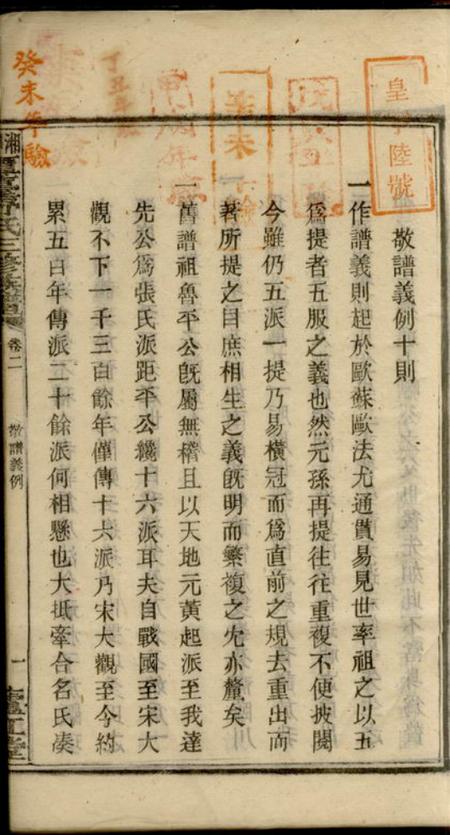 皇字陸號
癸未年驗
敬譜義例十則
一作譜義則起於歐蘇歐法尤通貫易見世率祖之以五
為提者五服之義也然元孫再提往往重複不便披閱
今雖仍五派一提乃易橫冠而為直前之規去重出而
著所提之目庶相生之義旣明而繁複之尤亦釐矣
一舊譜祖魯平公旣屬無稽且以天地元黃起派至我達
先公為張氏派距平公纔十六派耳夫自戰國至宋大
觀不下一千三百餘年僅傳十六派乃宋大觀至今約
累五百年傳派二十餘派何相懸也大抵牽合名氏湊
氏三修族譜
卷二
敬譜義例
一